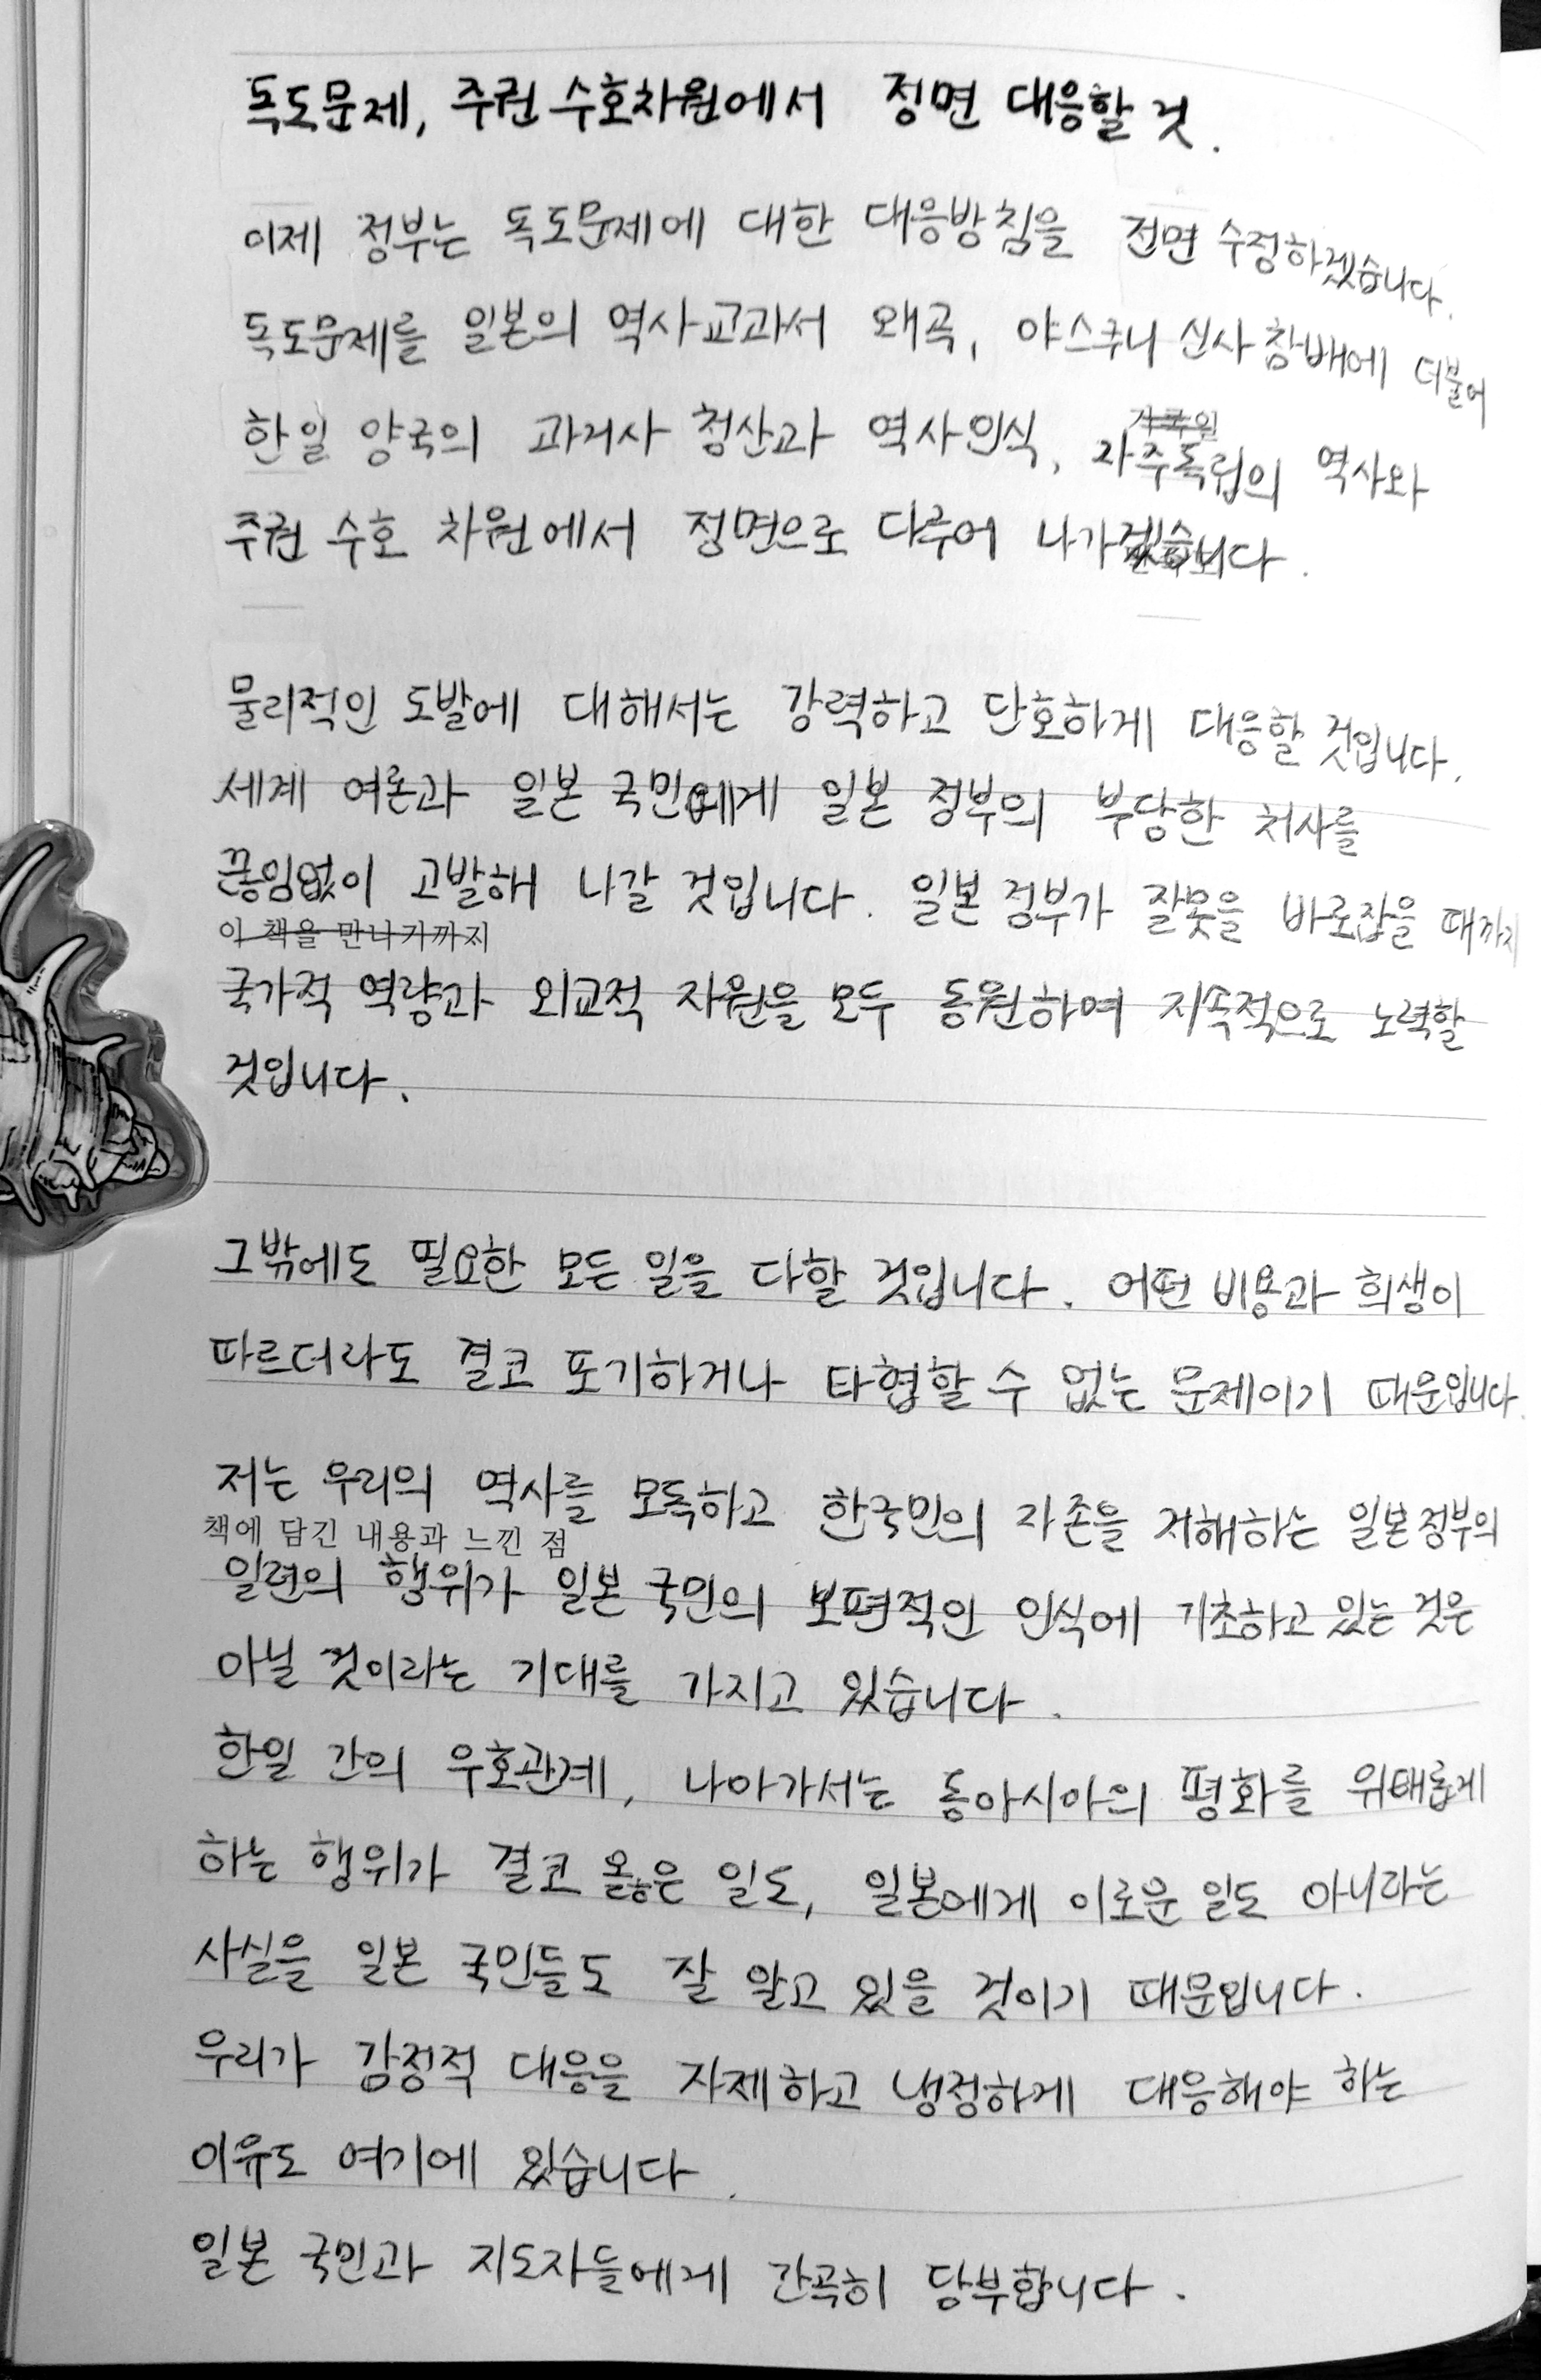 독도문제, 주권 수호차원에서 정면 대응할 것.
이제 정부는 독도문제에 대한 대응방침을 전면 수정하겠습니다.
독도문제를 일본의 역사교과서 왜곡, 야스쿠니 신사 참배에 더불어
한일 양국의 과거사 청산과 역사인식, 자주독립의 역사와
주권 수호 차원에서 정면으로 다루어 나가겠습니다.
물리적인 도발에 대해서는 강력하고 단호하게 대응할 것입니다.
세계 여론과 일본 국민에게 일본 정부의 부당한 처사를
끊임없이 고발해 나갈 것입니다. 일본 정부가 잘못을 바로잡을 때까지
이 책을 만나기까지
국가적 역량과 외교적 자원을 모두 동원하여 지속적으로 노력할
것입니다.
그밖에도 필요한 모든 일을 다할 것입니다. 어떤 비용과 희생이
따르더라도 결코 포기하거나 타협할 수 없는 문제이기 때문입니다.
저는 우리의 역사를 모독하고 한국민의 자존을 저해하는 일본정부의
책에 담긴 내용과 느낀 점
일련의 행위가 일본 국민의 보편적인 인식에 기초하고 있는 것은
아닐 것이라는 기대를 가지고 있습니다.
한일 간의 우호관계, 나아가서는 동아시아의 평화를 위태롭게
하는 행위가 결코 옳은 일도, 일본에게 이로운 일도 아니라는
사실을 일본 국민들도 잘 알고 있을 것이기 때문입니다.
우리가 감정적 대응을 자제하고 냉정하게 대응해야 하는
이유도 여기에 있습니다.
일본 국민과 지도자들에게 간곡히 당부합니다.